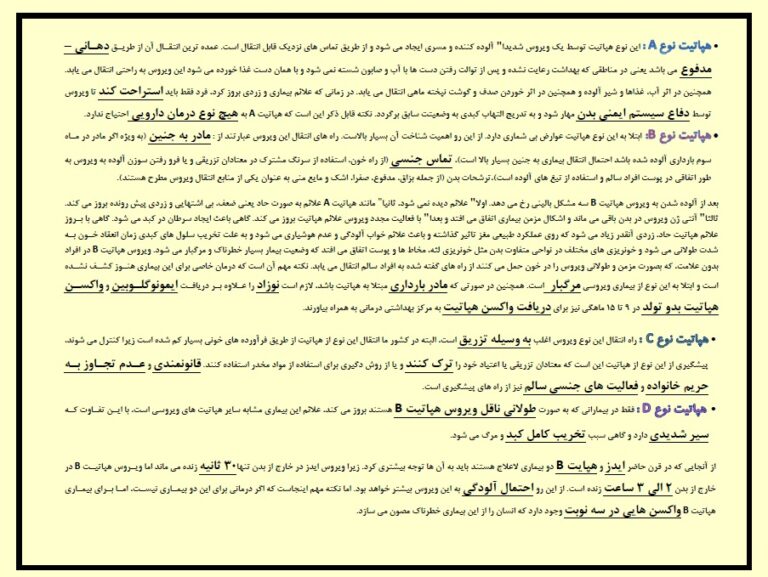 • هپاتیت نوع A : این نوع هپاتیت توسط یک ویروس شدیدا" آلوده کننده و مسری ایجاد می شود و از طریق تماس های نزدیک قابل انتقال است. عمده ترین انتقال آن از طریق دهانی –
مدفوع می باشد یعنی در مناطقی که بهداشت رعایت نشده و پس از توالت رفتن دست ها با آب و صابون شسته نمی شود و با همان دست غذا خورده می شود این ویروس به راحتی انتقال می یابد.
همچنین در اثر آب، غذاها و شیر آلوده و همچنین در اثر خوردن صدف و گوشت نپخته ماهی انتقال می یابد. در زمانی که علائم بیماری و زردی بروز کرد، فرد فقط باید استراحت کند تا ویروس
توسط دفاع سیستم ایمنی بدن مهار شود و به تدریج التهاب کبدی به وضعیتت سابق برگردد. نکته قابل ذکر این است که هپاتیت A به هیچ نوع درمان دارویی احتیاج ندارد.
• هپاتیت نوع B: ابتلا به این نوع هپاتیت عوارض بی شماری دارد. از این رو اهمیت شناخت آن بسیار بالاست. راه های انتقال این ویروس عبارتند از : مادر به جنین (به ویژه اگر مادر در ماه
سوم بارداری آلوده شده باشد احتمال انتقال بیماری به جنین بسیار بالا است)، تماس جنسی (از راه خون، استفاده از سرنگ مشترک در معتادان تزریقی و یا فرو رفتن سوزن آلوده به ویروس به
طور اتفاقی در پوست افراد سالم و استفاده از تیغ های آلوده است)،ترشحات بدن (از جمله بزاق، مدفوع، صفرا، اشک و مایع منی به عنوان یکی از منابع انتقال ویروس مطرح هستند).
بعد از آلوده شدن به ویروس هپاتیت B سه مشکل بالینی رخ می دهد. اولا" علائم دیده نمی شود. ثانیا" مانند هپاتیت A علائم به صورت حاد یعنی ضعف، بی اشتهایی و زردی پیش رونده بروز می کند.
ثالثا" آنتی ژن ویروس در بدن باقی می ماند و اشکال مزمن بیماری اتفاق می افتد و بعدا" با فعالیت مجدد ویروس علائم هپاتیت بروز می کند. گاهی باعث ایجاد سرطان در کبد می شود. گاهی با بروز
علائم هپاتیت حاد، زردی آنقدر زیاد می شود که روی عملکرد طبیعی مغز تاثیر گذاشته و باعث علائم خواب آلودگی و عدم هوشیاری می شود و به علت تخریب سلول های کبدی زمان انعقاد خون به
شدت طولانی می شود و خونریزی های مختلف در نواحی متفاوت بدن مثل خونریزی لثه، مخاط ها و پوست اتفاق می افتد که وضعیت بیمار بسیار خطرناک و مرگبار می شود. ویروس هپاتیت B در افراد
بدون علامت، که بصورت مزمن و طولانی ویروس را در خون حمل می کنند از راه های گفته شده به افراد سالم انتقال می یابد. نکته مهم آن است که درمان خاصی برای این بیماری هنوز کشف نشده
است و ابتلا به این نوع از بیماری ویروسی مرگبار است. همچنین در صورتی که مادر بارداری مبتلا به هپاتیت باشد، لازم است نوزاد را علاوه بر دریافت ایمونوگلوبین و واکسن
هپاتیت بدو تولد در ۹ تا ۱۵ ماهگی نیز برای دریافت واکسن هپاتیت به مرکز بهداشتی درمانی به همراه بیاورند.
• هپاتیت نوع C : راه انتقال این نوع ویروس اغلب به وسیله تزریق است. البته در کشور ما انتقال این نوع از هپاتیت از طریق فرآورده های خونی بسیار کم شده است زیرا کنترل می شوند.
پیشگیری از این نوع از هپاتیت این است که معتادان تزریقی یا اعتیاد خود را ترک کنند و یا از روش دگیری برای استفاده از مواد مخدر استفاده کنند. قانونمندی و عدم تجاوز به
حریم خانواده و فعالیت های جنسی سالم نیز از راه های پیشگیری است.
• هپاتیت نوع D : فقط در بیمارانی که به صورت طولانی ناقل ویروس هپاتیت B هستند بروز می کند. علائم این بیماری مشابه سایر هپاتیت های ویروسی است، با این تفاوت که
سیر شدیدی دارد و گاهی سبب تخریب کامل کبد و مرگ می شود.
از آنجایی که در قرن حاضر ایدز و هپایت B دو بیماری لاعلاج هستند باید به آن ها توجه بیشتری کرد. زیرا ویروس ایدز در خارج از بدن تنها ۳۰ ثانیه زنده می ماند اما ویروس هپاتیت B در
خارج از بدن ۲ الی ۳ ساعت زنده است. از این رو احتمال آلودگی به این ویروس بیشتر خواهد بود. اما نکته مهم اینجاست که اگر درمانی برای این دو بیماری نیست، اما برای بیماری
هپاتیت B واکسن هایی در سه نوبت وجود دارد که انسان را از این بیماری خطرناک مصون می سازد.